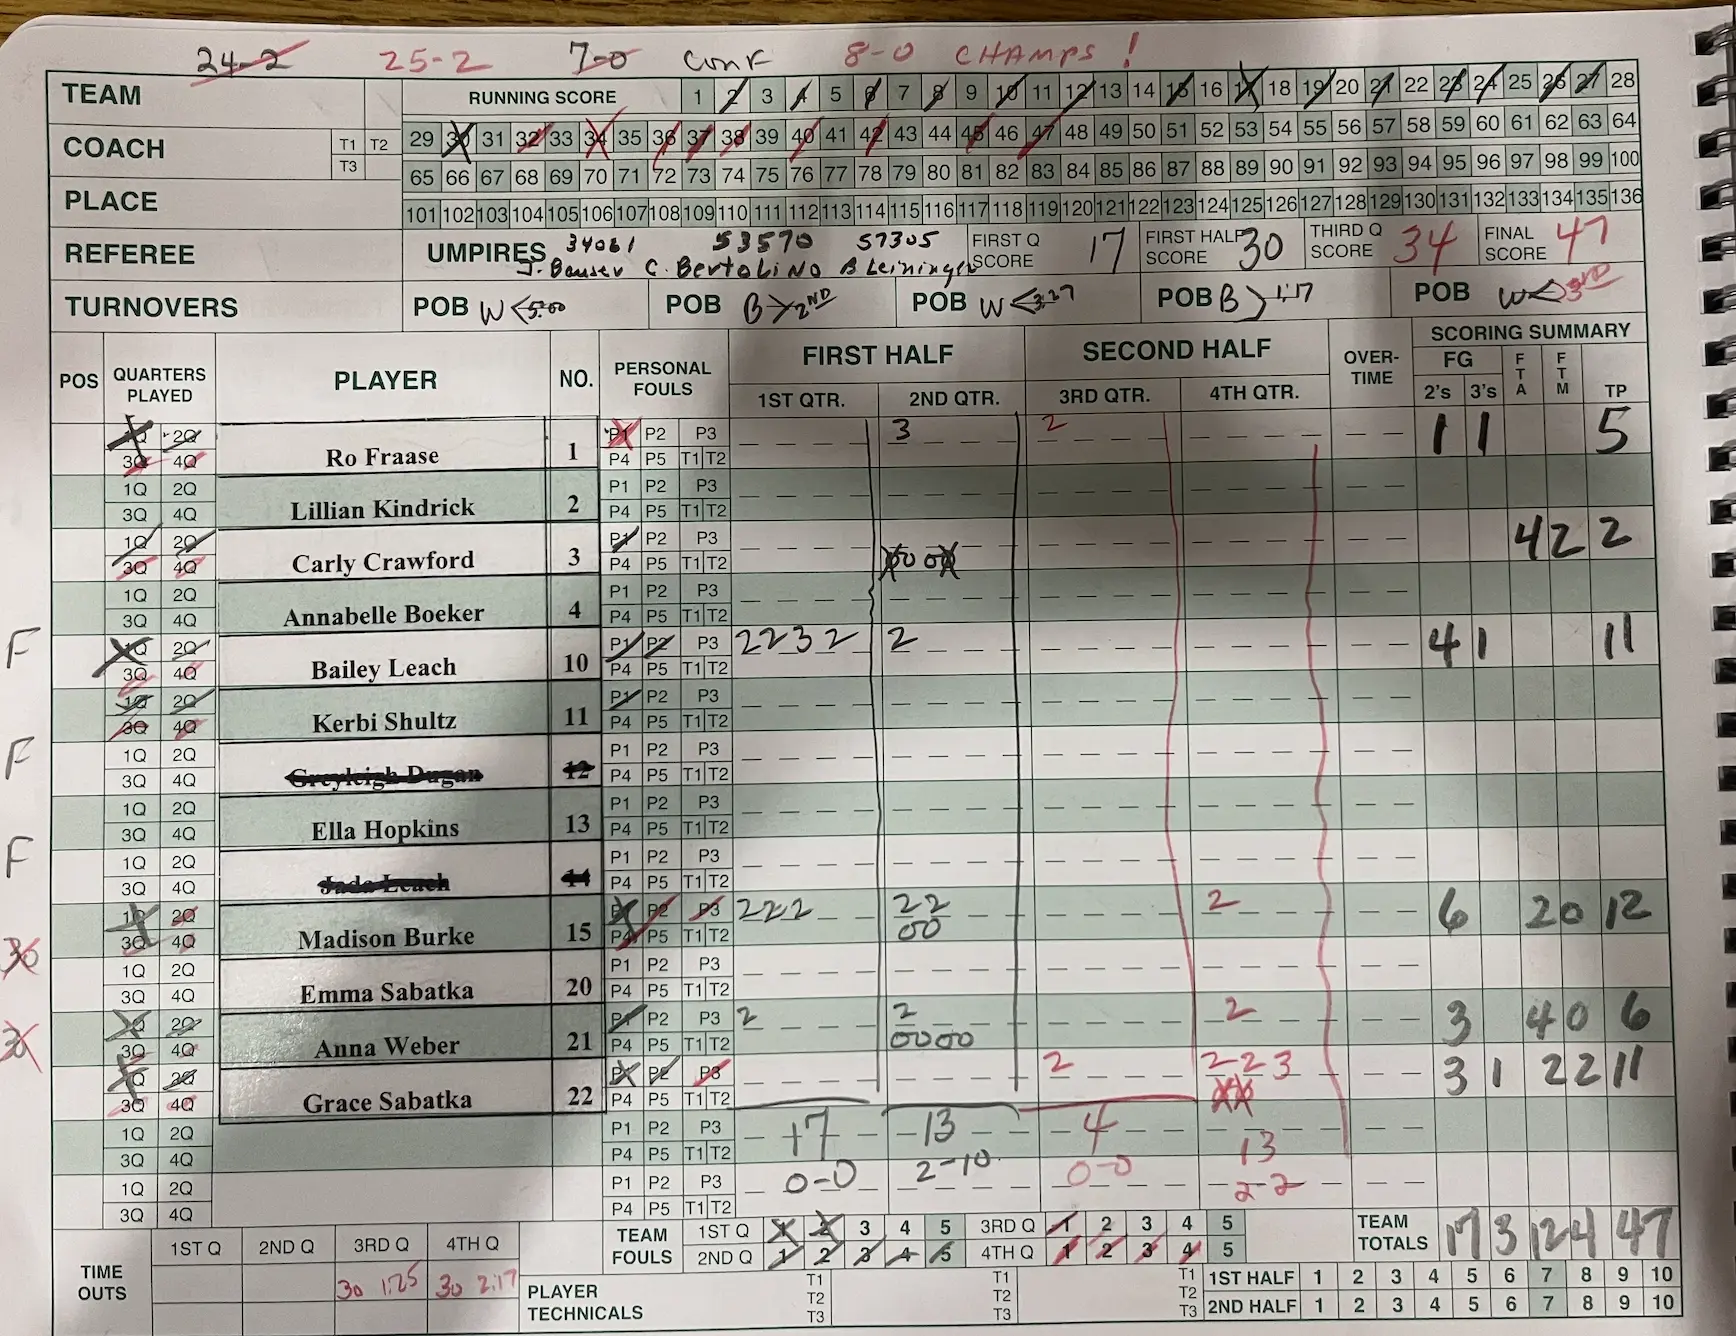 24-2 25-2 7-0 Conf 8-0 CHAMPS!
TEAM RUNNING SCORE 1 2 3 4 5 6 7 8 9 10 11 12 13 14 15 16 17 18 19 20 21 22 23 24 25 26 27 28
COACH T1 T2 T3 29 30 31 32 33 34 35 36 37 38 39 40 41 42 43 44 45 46 47 48 49 50 51 52 53 54 55 56 57 58 59 60 61 62 63 64
65 66 67 68 69 70 71 72 73 74 75 76 77 78 79 80 81 82 83 84 85 86 87 88 89 90 91 92 93 94 95 96 97 98 99 100
PLACE 101 102 103 104 105 106 107 108 109 110 111 112 113 114 115 116 117 118 119 120 121 122 123 124 125 126 127 128 129 130 131 132 133 134 135 136
REFEREE UMPIRES 34061 53570 57305 FIRST Q SCORE 17 FIRST HALF SCORE 30 THIRD Q SCORE 34 FINAL SCORE 47
J. Bauser C. Bertolino B Leininger
TURNOVERS POB W < 5:00 POB B > 2ND POB W < 3:27 POB B > 1:17 POB W < 3RD
POS QUARTERS PLAYED PLAYER NO. PERSONAL FOULS FIRST HALF SECOND HALF OVER-TIME SCORING SUMMARY
1ST QTR. 2ND QTR. 3RD QTR. 4TH QTR. FG 2's 3's FTA FTM TP
1Q 2Q P1 P2 P3 3 2
3Q 4Q Ro Fraase 1 P4 P5 T1 T2 1 1 5
1Q 2Q P1 P2 P3
3Q 4Q Lillian Kindrick 2 P4 P5 T1 T2
1Q 2Q P1 P2 P3
3Q 4Q Carly Crawford 3 P4 P5 T1 T2 4 2 2
1Q 2Q P1 P2 P3
3Q 4Q Annabelle Boeker 4 P4 P5 T1 T2
F 1Q 2Q P1 P2 P3 2 2 3 2 2
3Q 4Q Bailey Leach 10 P4 P5 T1 T2 4 1 11
1Q 2Q P1 P2 P3
3Q 4Q Kerbi Shultz 11 P4 P5 T1 T2
F 1Q 2Q P1 P2 P3
3Q 4Q Greyleigh Dugan 12 P4 P5 T1 T2
1Q 2Q P1 P2 P3
3Q 4Q Ella Hopkins 13 P4 P5 T1 T2
F 1Q 2Q P1 P2 P3
3Q 4Q Jada Leach 14 P4 P5 T1 T2
1Q 2Q P1 P2 P3 2 2 2 2 2 2
3Q 4Q Madison Burke 15 P4 P5 T1 T2 00 6 2 0 12
30 1Q 2Q P1 P2 P3
3Q 4Q Emma Sabatka 20 P4 P5 T1 T2
1Q 2Q P1 P2 P3 2 2 2
30 3Q 4Q Anna Weber 21 P4 P5 T1 T2 0000 3 4 0 6
1Q 2Q P1 P2 P3 2 2 2 3
3Q 4Q Grace Sabatka 22 P4 P5 T1 T2 3 1 2 2 11
1Q 2Q P1 P2 P3 17 13 4
3Q 4Q P4 P5 T1 T2 13
1Q 2Q P1 P2 P3 0-0 2-10 0-0 2-2
3Q 4Q P4 P5 T1 T2
TEAM FOULS 1ST Q 1 2 3 4 5 3RD Q 1 2 3 4 5 TEAM TOTALS 17 3 12 4 47
2ND Q 1 2 3 4 5 4TH Q 1 2 3 4 5
TIME OUTS 1ST Q 2ND Q 3RD Q 4TH Q
30 1:25 30 2:17
PLAYER TECHNICALS T1 T2 T3 T1 T2 T3 T1 T2 T3
1ST HALF 1 2 3 4 5 6 7 8 9 10
2ND HALF 1 2 3 4 5 6 7 8 9 10